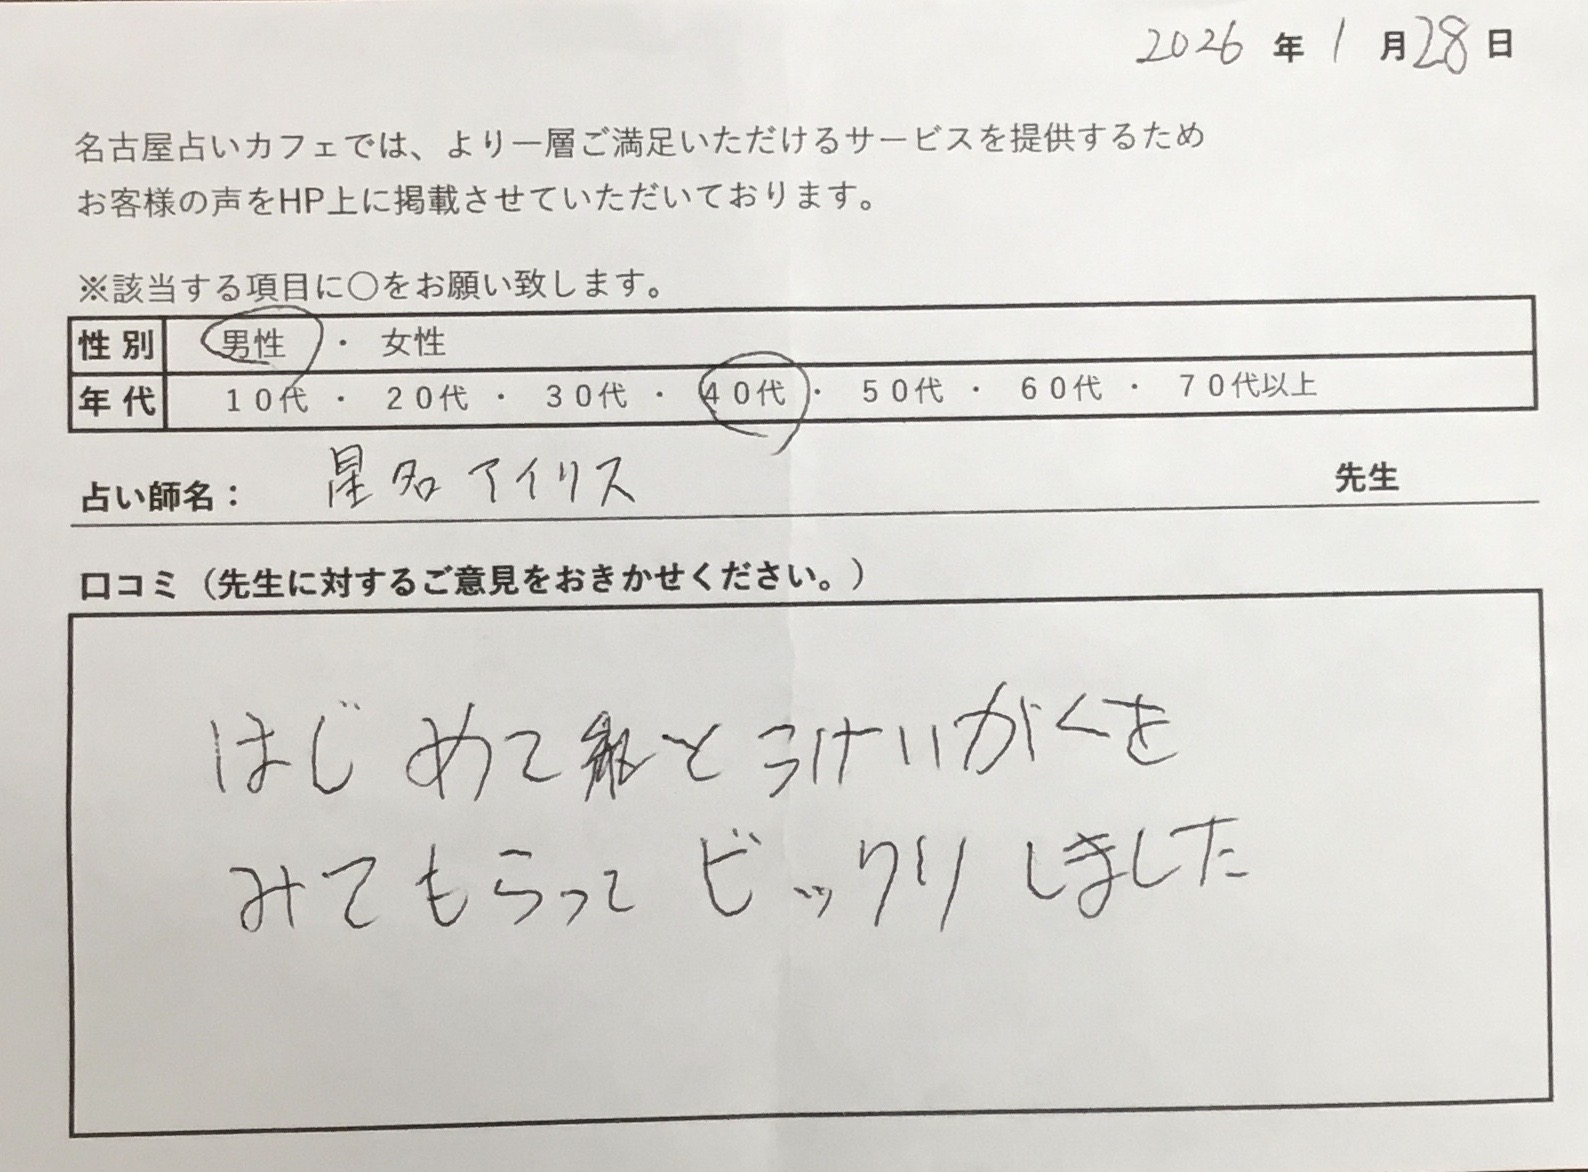 2026 年 1 月 28 日
名古屋占いカフェでは、より一層ご満足いただけるサービスを提供するため
お客様の声をHP上に掲載させていただいております。
※該当する項目に○をお願い致します。
性別 男性 ・ 女性
年代 10代 ・ 20代 ・ 30代 ・ 40代 ・ 50代 ・ 60代 ・ 70代以上
占い師名： 星名アイリス 先生
口コミ（先生に対するご意見をおきかせください。）
はじめて と うけいがくを
みてもらって ビックリしました